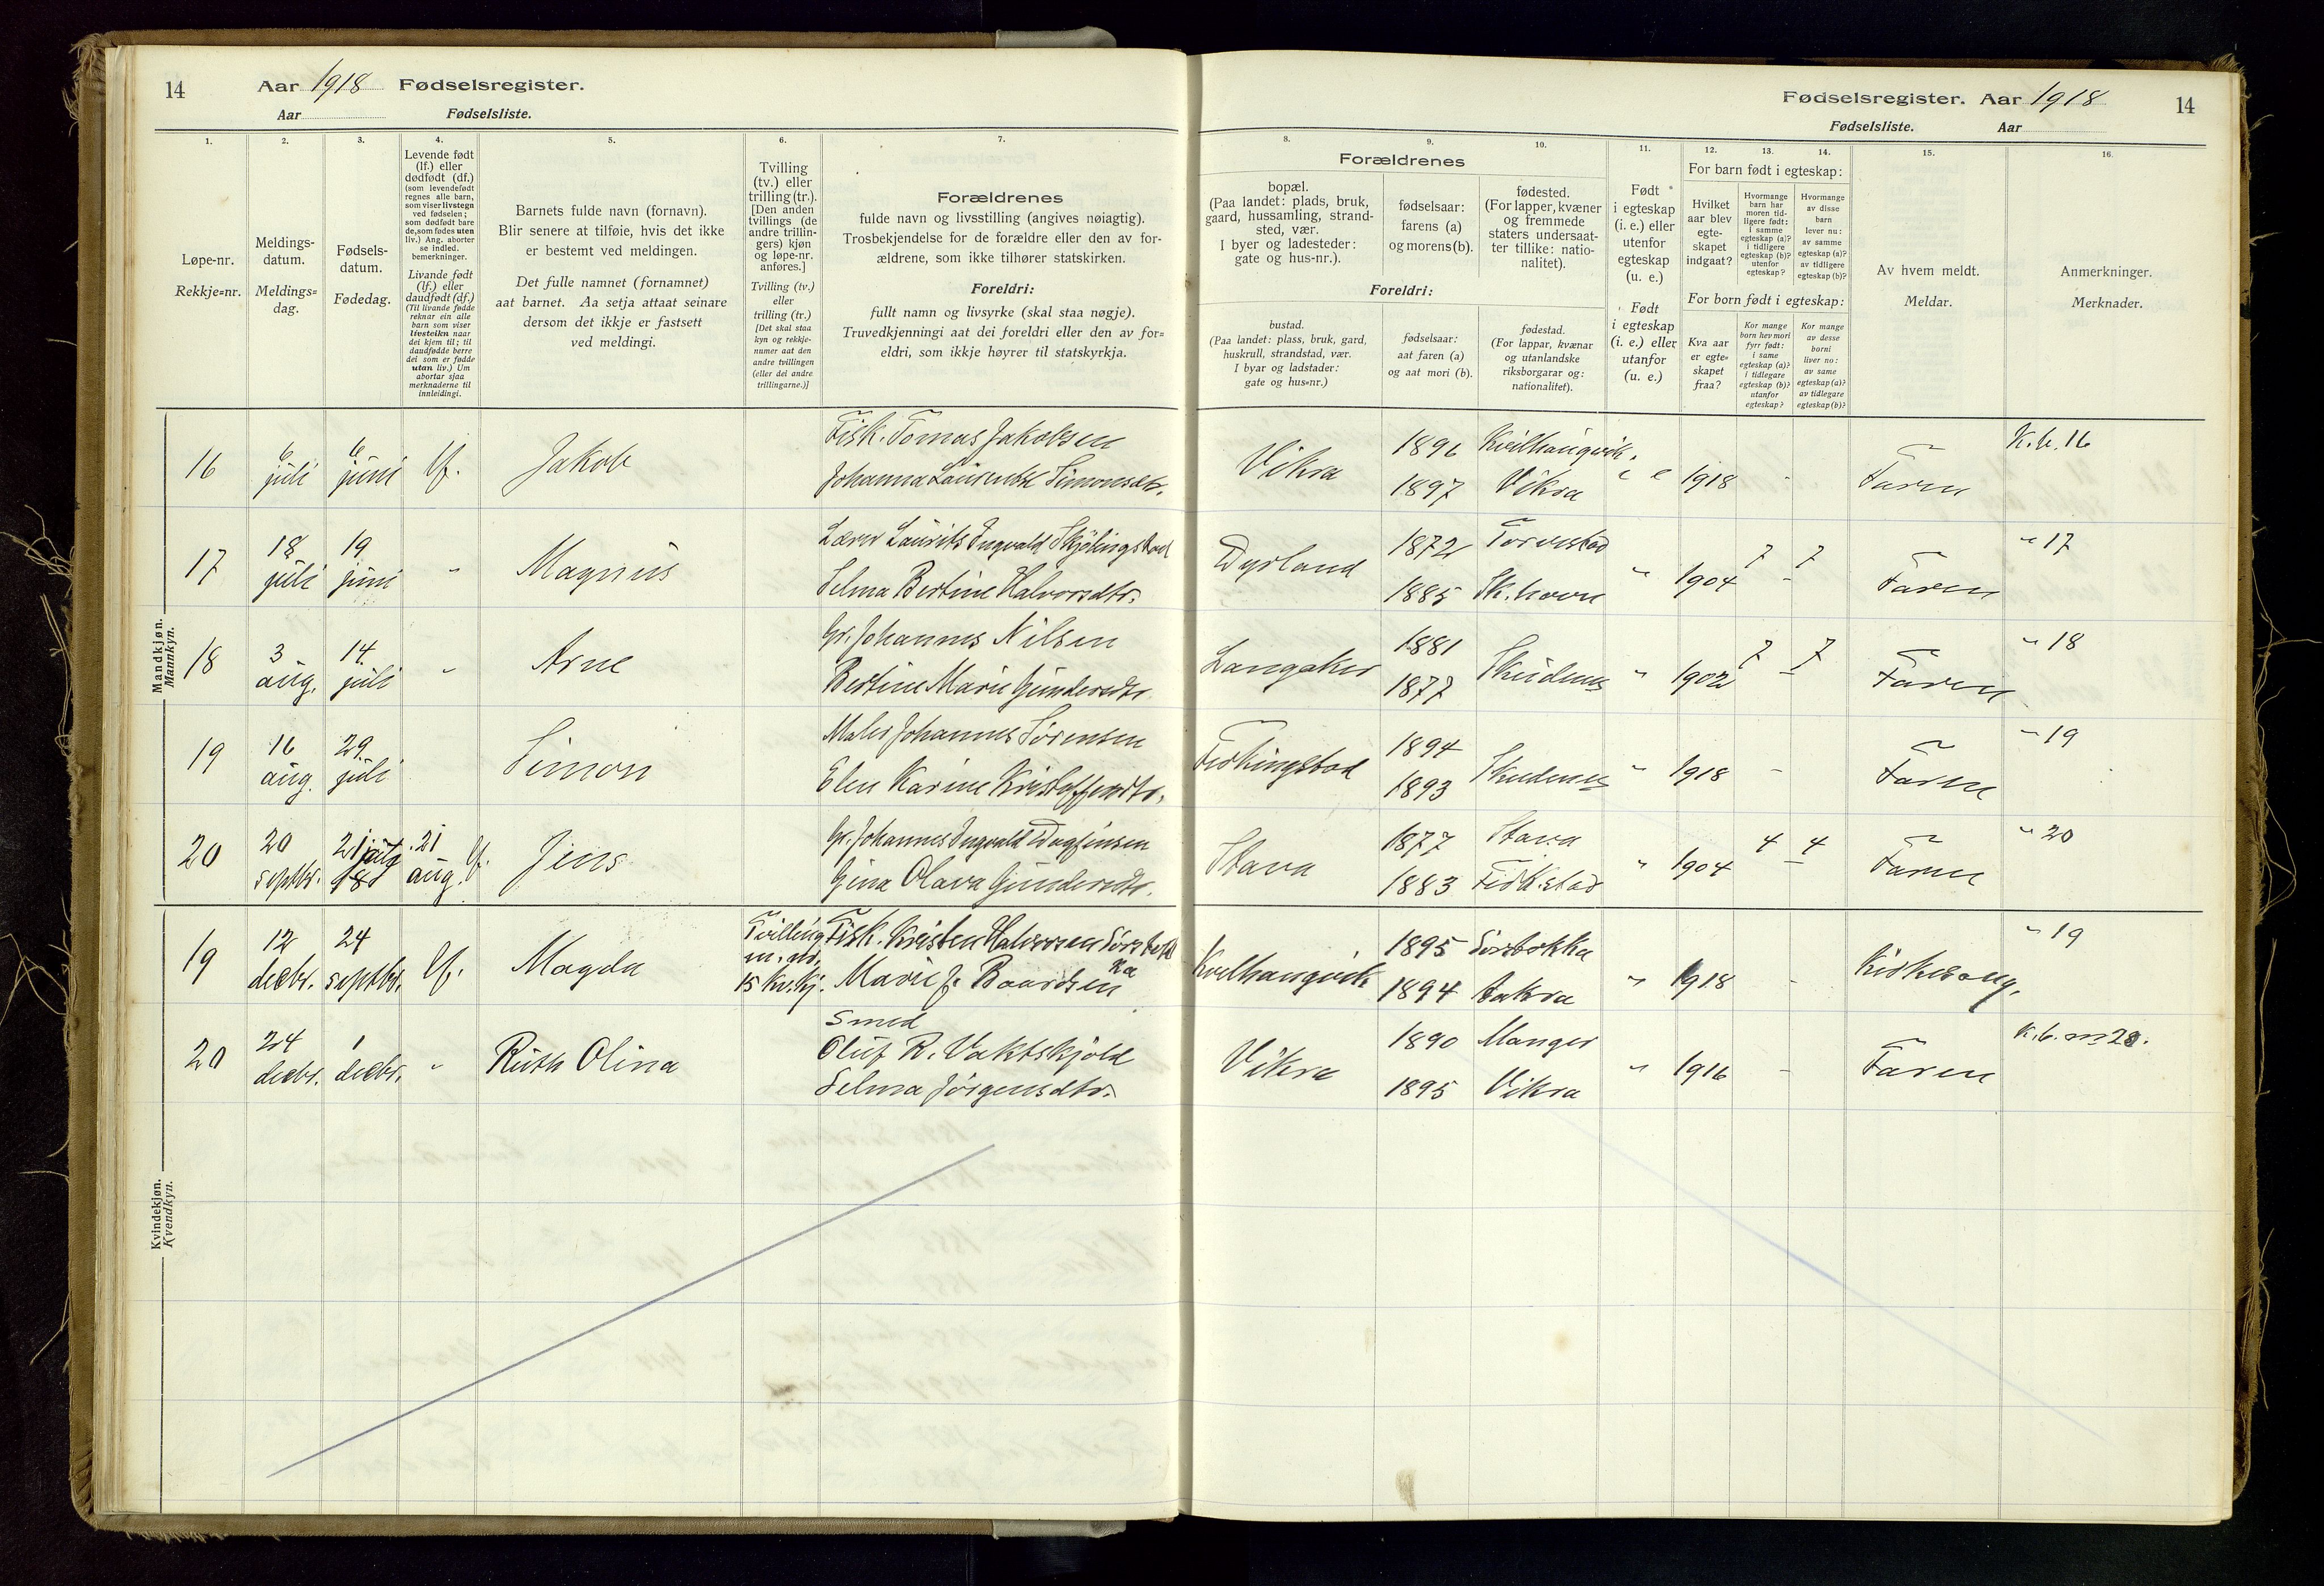 14 Aar 1918 Fødselsregister.
Aar Fødselsliste.
1.
Løpe-nr.
Rekkje=nr.
2.
Meldings-
datum.
Meldings=
dag.
3.
Fødsels-
datum.
Fødedag.
4.
Levende født
(lf.) eller
dødfødt (df.)
(som levendefødt
regnes alle barn,
som viser livstegn
ved fødselen;
som dødfødt bare
de, som fødes uten
liv.) Ang. aborter
se indled.
bemerkninger.
Livande født
(lf.) eller
daudfødt (df.)
(Til livande fødde
reknar ein alle
barn som viser
livsteikn naar
dei kjem til; til
daudfødde berre
dei som er fødde
utan liv.) Um
abortar sjaa
merknaderne til
innleidingi.
5.
Barnets fulde navn (fornavn).
Blir senere at tilføie, hvis det ikke
er bestemt ved meldingen.
Det fulle namnet (fornamnet)
aat barnet. Aa setja attaat seinare
dersom det ikkje er fastsett
ved meldingi.
6.
Tvilling
(tv.) eller
trilling (tr.).
[Den anden
tvillings (de
andre trillin-
gers) kjøn
og løpe-nr.
anføres.]
Tvilling (tv.)
eller
trilling (tr.)
[Det skal staa
kyn og rekkje-
numer aat den
andre tvillingen
(eller dei andre
trillingarne.)]
7.
Forældrenes
fulde navn og livsstilling (angives nøiagtig).
Trosbekjendelse for de forældre eller den av for-
ældrene, som ikke tilhører statskirken.
Foreldri:
fullt namn og livsyrke (skal staa nøgje).
Truvedkjenningi aat dei foreldri eller den av for=
eldri, som ikkje høyrer til statskyrkja.
Mandkjøn.
Mannkyn.
16 6 juli 6 juni lf. Jakob
Fisk. Tomas Jakobsen
Johanna Laurentse Simonsdtr.
17 18 juli 19 juni " Magnus
Lærer Laurits Ingvald Skjölingstad
Selma Bertine Halvorsdtr.
18 3 aug. 14. juli " Arne
Gr. Johannes Nilsen
Bertine Marie Gundersdtr.
19 16 aug. 29. juli Simon
Maler Johannes Sørensen
Elen Karine Kristoffersdtr.
20 20 septbr. 21 21 aug. lf. Jens
Gr. Johannes Ingvald Dagfinsen
Gina Olava Gundersdtr.
Kvindekjøn.
Kvendkyn.
19 12 decbr. 24 septbr. lf. Magda
Tvilling
m. nr.
15 kv.kj.
Fisk. Kristen Halvorsen Sørstokk
ka
Marie J. Baardsen
20 24 decbr. 1 decbr. " Ruth Olina
Smed
Oluf R. Vaktskjold
Selma Jørgensdtr.
Fødselsregister. Aar 1918 14
Fødselsliste. Aar
8.
Forældrenes
bopæl.
(Paa landet: plads, bruk,
gaard, hussamling, strand-
sted, vær.
I byer og ladesteder:
gate og hus-nr.).
Foreldri:
bustad.
(Paa landet: plass, bruk, gard,
huskrull, strandstad, vær.
I byar og ladstader:
gate og hus=nr.)
9.
fødselsaar:
farens (a)
og morens (b).
fødselsaar:
aat faren (a)
og aat mori (b).
10.
fødested.
(For lapper, kvæner
og fremmede
staters undersaat-
ter tillike: natio-
nalitet).
fødestad.
(For lappar, kvænar
og utanlandske
riksborgarar og:
nationalitet).
11.
Født
i egteskap
(i. e.) eller
utenfor
egteskap
(u. e.)
Født
i egteskap
(i. e.) eller
utanfor
(u. e.)
12. 13. 14.
For barn født i egteskap:
Hvilket
aar blev
egte-
skapet
indgaat?
Hvormange
barn har
moren tid-
ligere født:
i samme
egteskap (a)?
i tidligere
egteskap (b)?
utenfor
egteskap?
Hvormange
av disse
barn
lever nu:
av samme
egteskap (a)?
av tidligere
egteskap (b)?
For born født i egteskap:
Kva aar
er egte=
skapet
fraa?
Kor mange
born hev mori
fyrr født:
i same
egteskap (a)?
i tidlegare
egteskap (b)?
utanfor
egteskap?
Kor mange
av desse
borni
liver no:
av same
egteskap (a)?
av tidlegare
egteskap (b)?
15.
Av hvem meldt.
Meldar.
16.
Anmerkninger.
Merknader.
Vikra 1896 Kvilhaugvik i e 1918 - Faren K.b. 16
1897 Vikra
Dyrland 1872 Torvestad " 1904 7 7 Faren " 17
1885 Sk.havn
Langaker 1881 Skudenes " 1902 7 7 Faren " 18
1877
Ferkingstad 1894 Skudenes " 1918 - Faren " 19
1893
Stava 1877 Stava " 1904 4 4 Faren " 20
1883 Ferk.stad
Kvilhaugvik 1895 Sørstokka " 1918 - Kirkesang. " 19
1894 Aakra
Vikra 1890 Manger " 1916 - Faren K.b. nr 20.
1895 Vikra